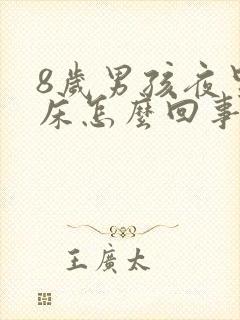 8歲男孩夜
床怎麼回事
王廣太